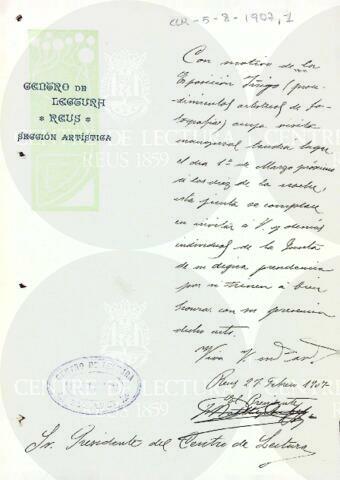 CLR-5-8-1907,1
CENTRO DE
LECTURA
* REUS *
SECCIÓN ARTÍSTICA
Con motivo de la
Exposición Trigo (proce-
dimientos artísticos de fo-
tografía) cuya visita
inaugural tendrá lugar
el día 1º de Marzo próximo
a las diez de la noche,
esta junta se complace
en invitar a V. y demás
individuos de la Junta
de su digna presidencia
por si tienen a bien
honrar con su presencia
dicho acto.
Viva V. m. as.
Reus 27 Febrero 1907
El Presidente
Sr. Presidente del Centro de Lectura
CENTRO DE LECTURA
CENTRE DE LECTURA
REUS 1859